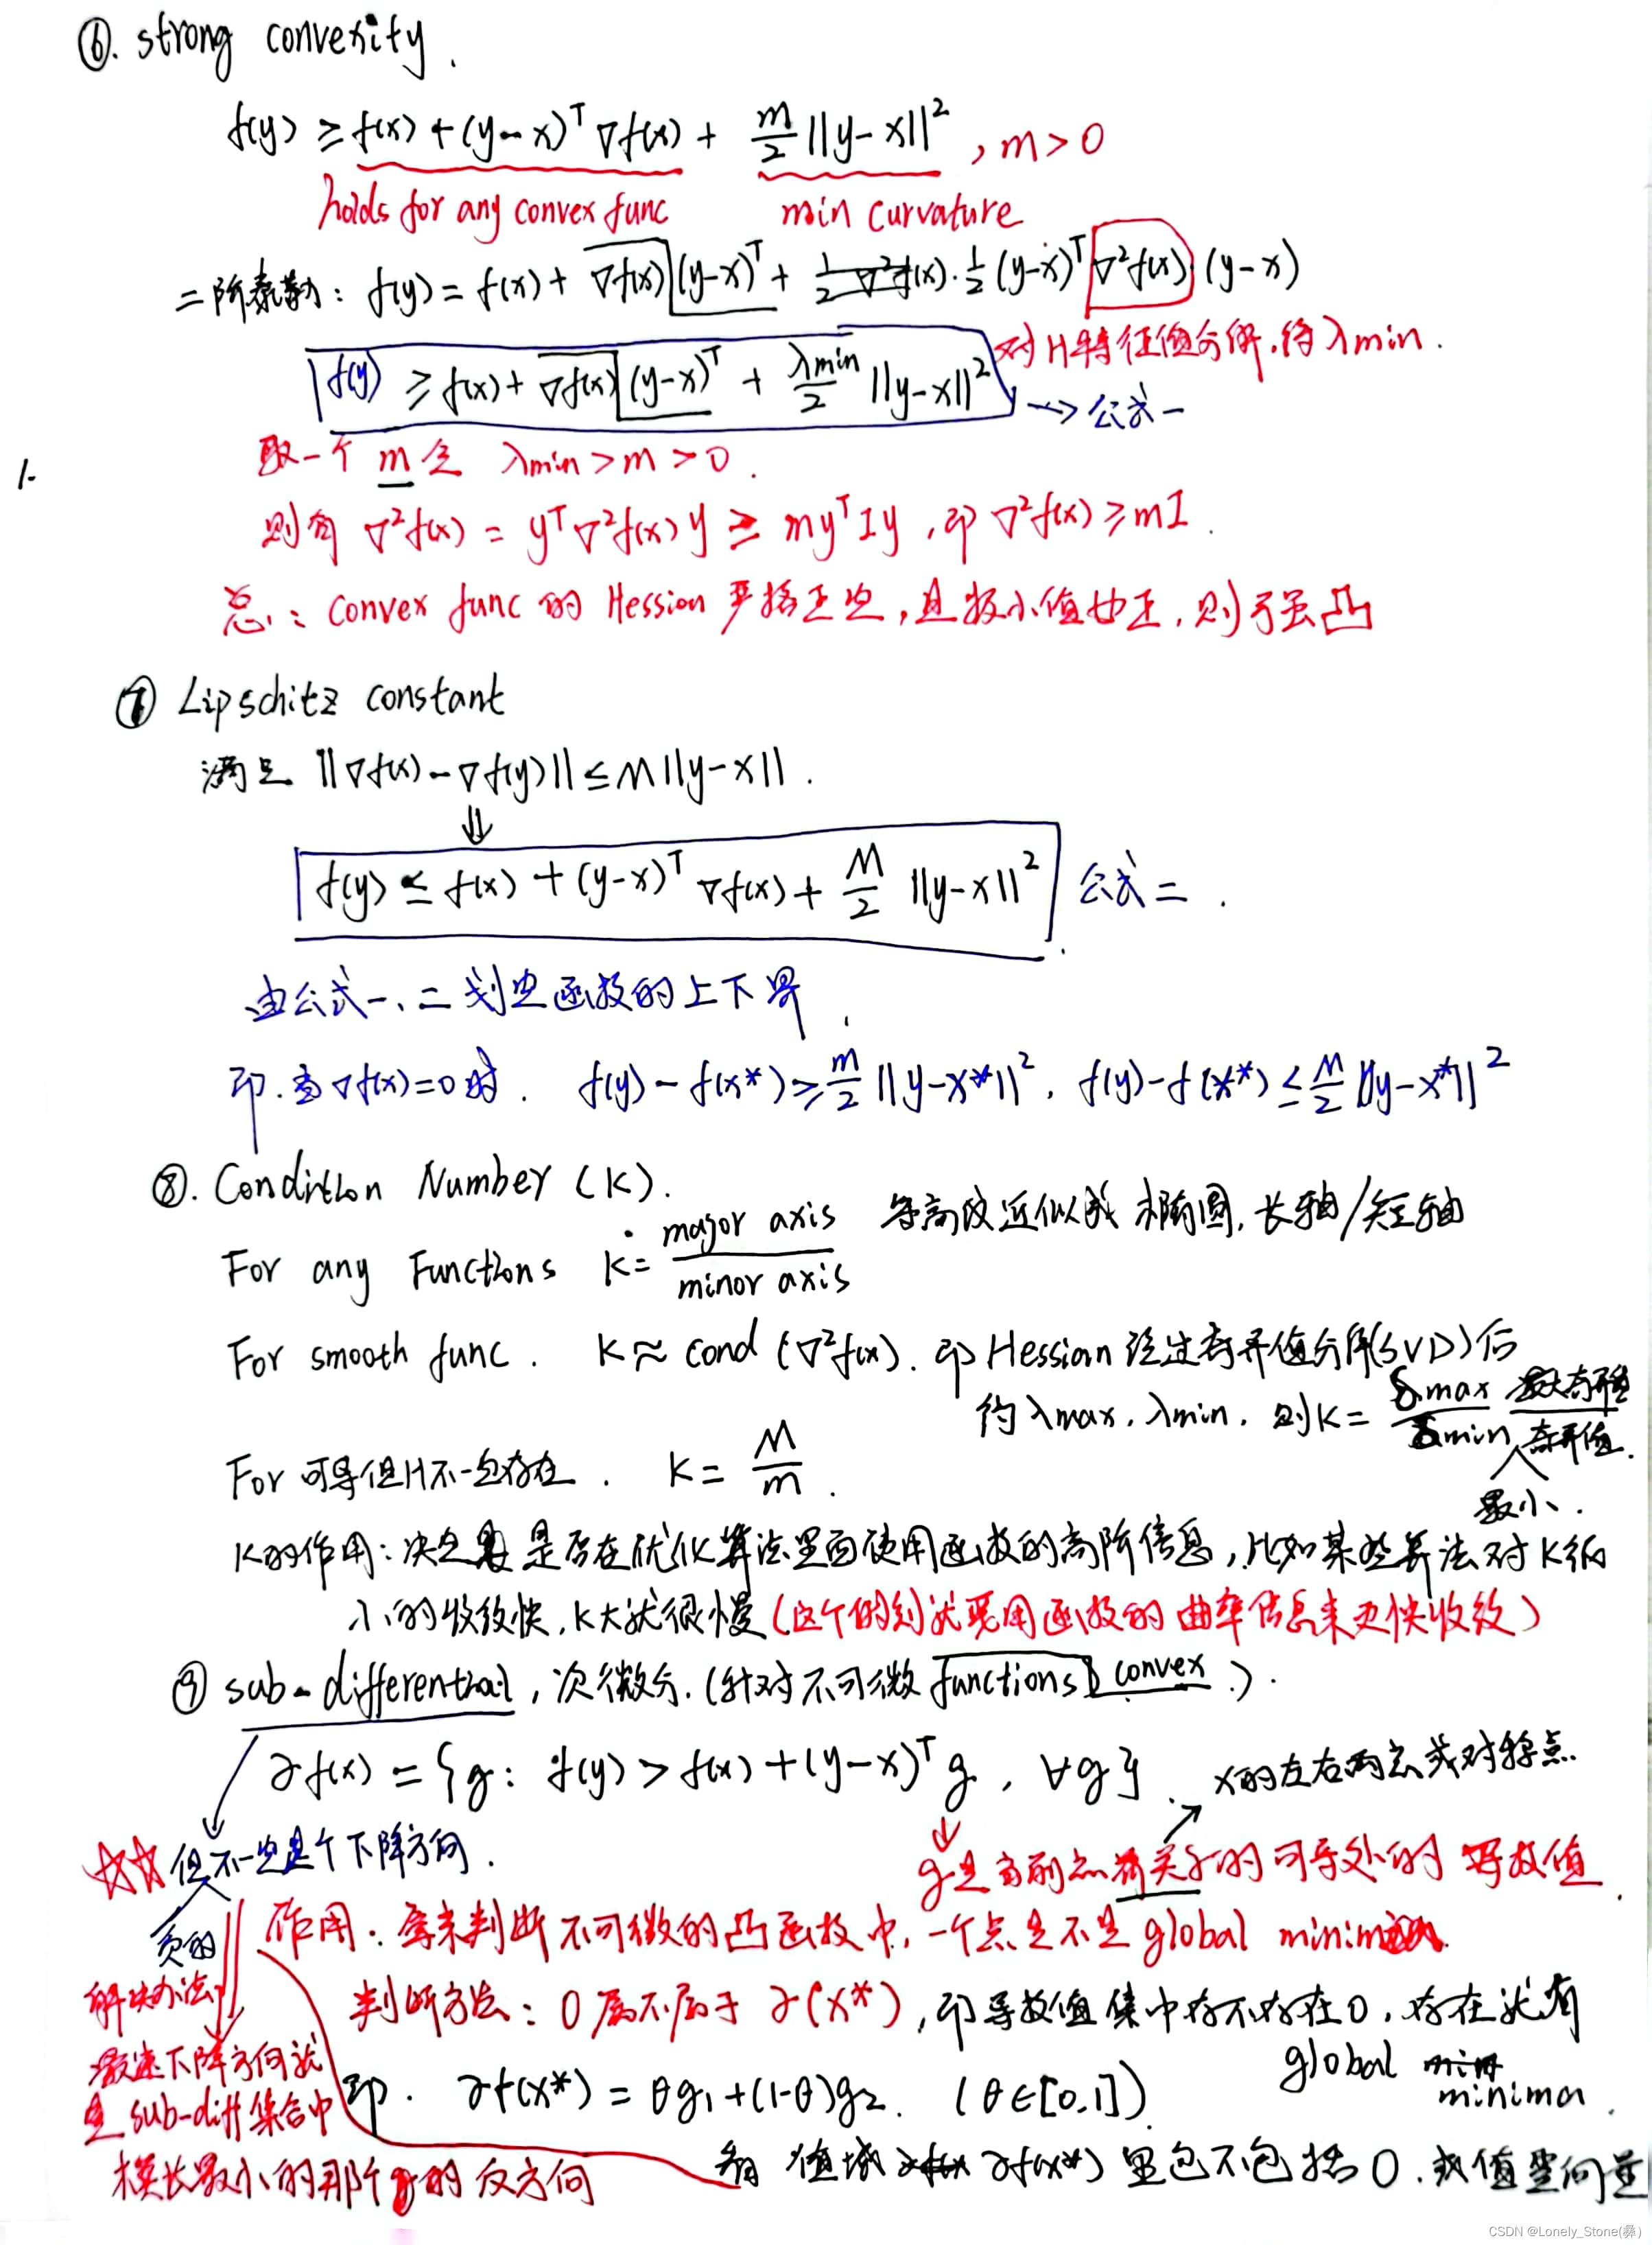 ⑥. strong convexity.
f(y) ≥ f(x) + (y-x)ᵀ ∇f(x) + m/2 ||y-x||², m>0
holds for any convex func min curvature
二阶泰勒: f(y) = f(x) + ∇f(x)(y-x)ᵀ + 1/2 ∇²f(x)· 1/2 (y-x)ᵀ ∇²f(x) (y-x)
对H特征值分解.得λmin.
f(y) ≥ f(x) + ∇f(x)(y-x)ᵀ + λmin/2 ||y-x||² → 公式一
取一个 m 令 λmin > m > 0.
1.
则有 ∇²f(x) = yᵀ∇²f(x)y ≥ myᵀIy, 即 ∇²f(x) ≥ mI.
总: convex func 的 Hession 严格正定, 且极小值也正, 则为强凸
⑦ Lipschitz constant
满足 ||∇f(x) - ∇f(y)|| ≤ M||y-x||.
⇓
f(y) ≤ f(x) + (y-x)ᵀ ∇f(x) + M/2 ||y-x||² 公式二.
由公式一、二 划定函数的上下界
即.当∇f(x)=0时. f(y) - f(x*) ≥ m/2 ||y-x*||², f(y) - f(x*) ≤ M/2 ||y-x*||²
⑧. Condition Number (K).
For any Functions K = major axis / minor axis 等高线近似成 椭圆, 长轴/短轴
For smooth func. K ≈ cond (∇²f(x)). 即 Hessian 经过奇异值分解(SVD)后
的λmax, λmin. 则K = δmax/δmin 最大奇异值/奇异值.
最小.
For 可导但H不一定存在. K = M/m.
K的作用: 决定 是否在优化算法里面使用函数的高阶信息, 比如某些算法对K很
小的收敛快, K大就很慢 (这个时刻就要用函数的 曲率信息来更快收敛)
⑨ sub-differential, 次微分. (针对不可微 functions convex.).
∂f(x) = {g: f(y) > f(x) + (y-x)ᵀg, ∀g}. x的左右两 或对称点.
☆☆ 但不一定是个下降方向.
g是当前点 的可导处的 导数值.
负的
作用: 拿来判断不可微的凸函数中, 一个点是不是 global minim
解决办法
判断方法: 0属不属于 ∂(x*), 即导数值集中存不存在0, 存在就有
global minima.
最速下降方向就
是 sub-diff 集合中
模长最小的那个g的反方向
即. ∂f(x*) = θg₁ + (1-θ)g₂. (θ∈[0,1])
值域 ∂f(x*) 里包不包括0.
CSDN @Lonely_Stone(彝)